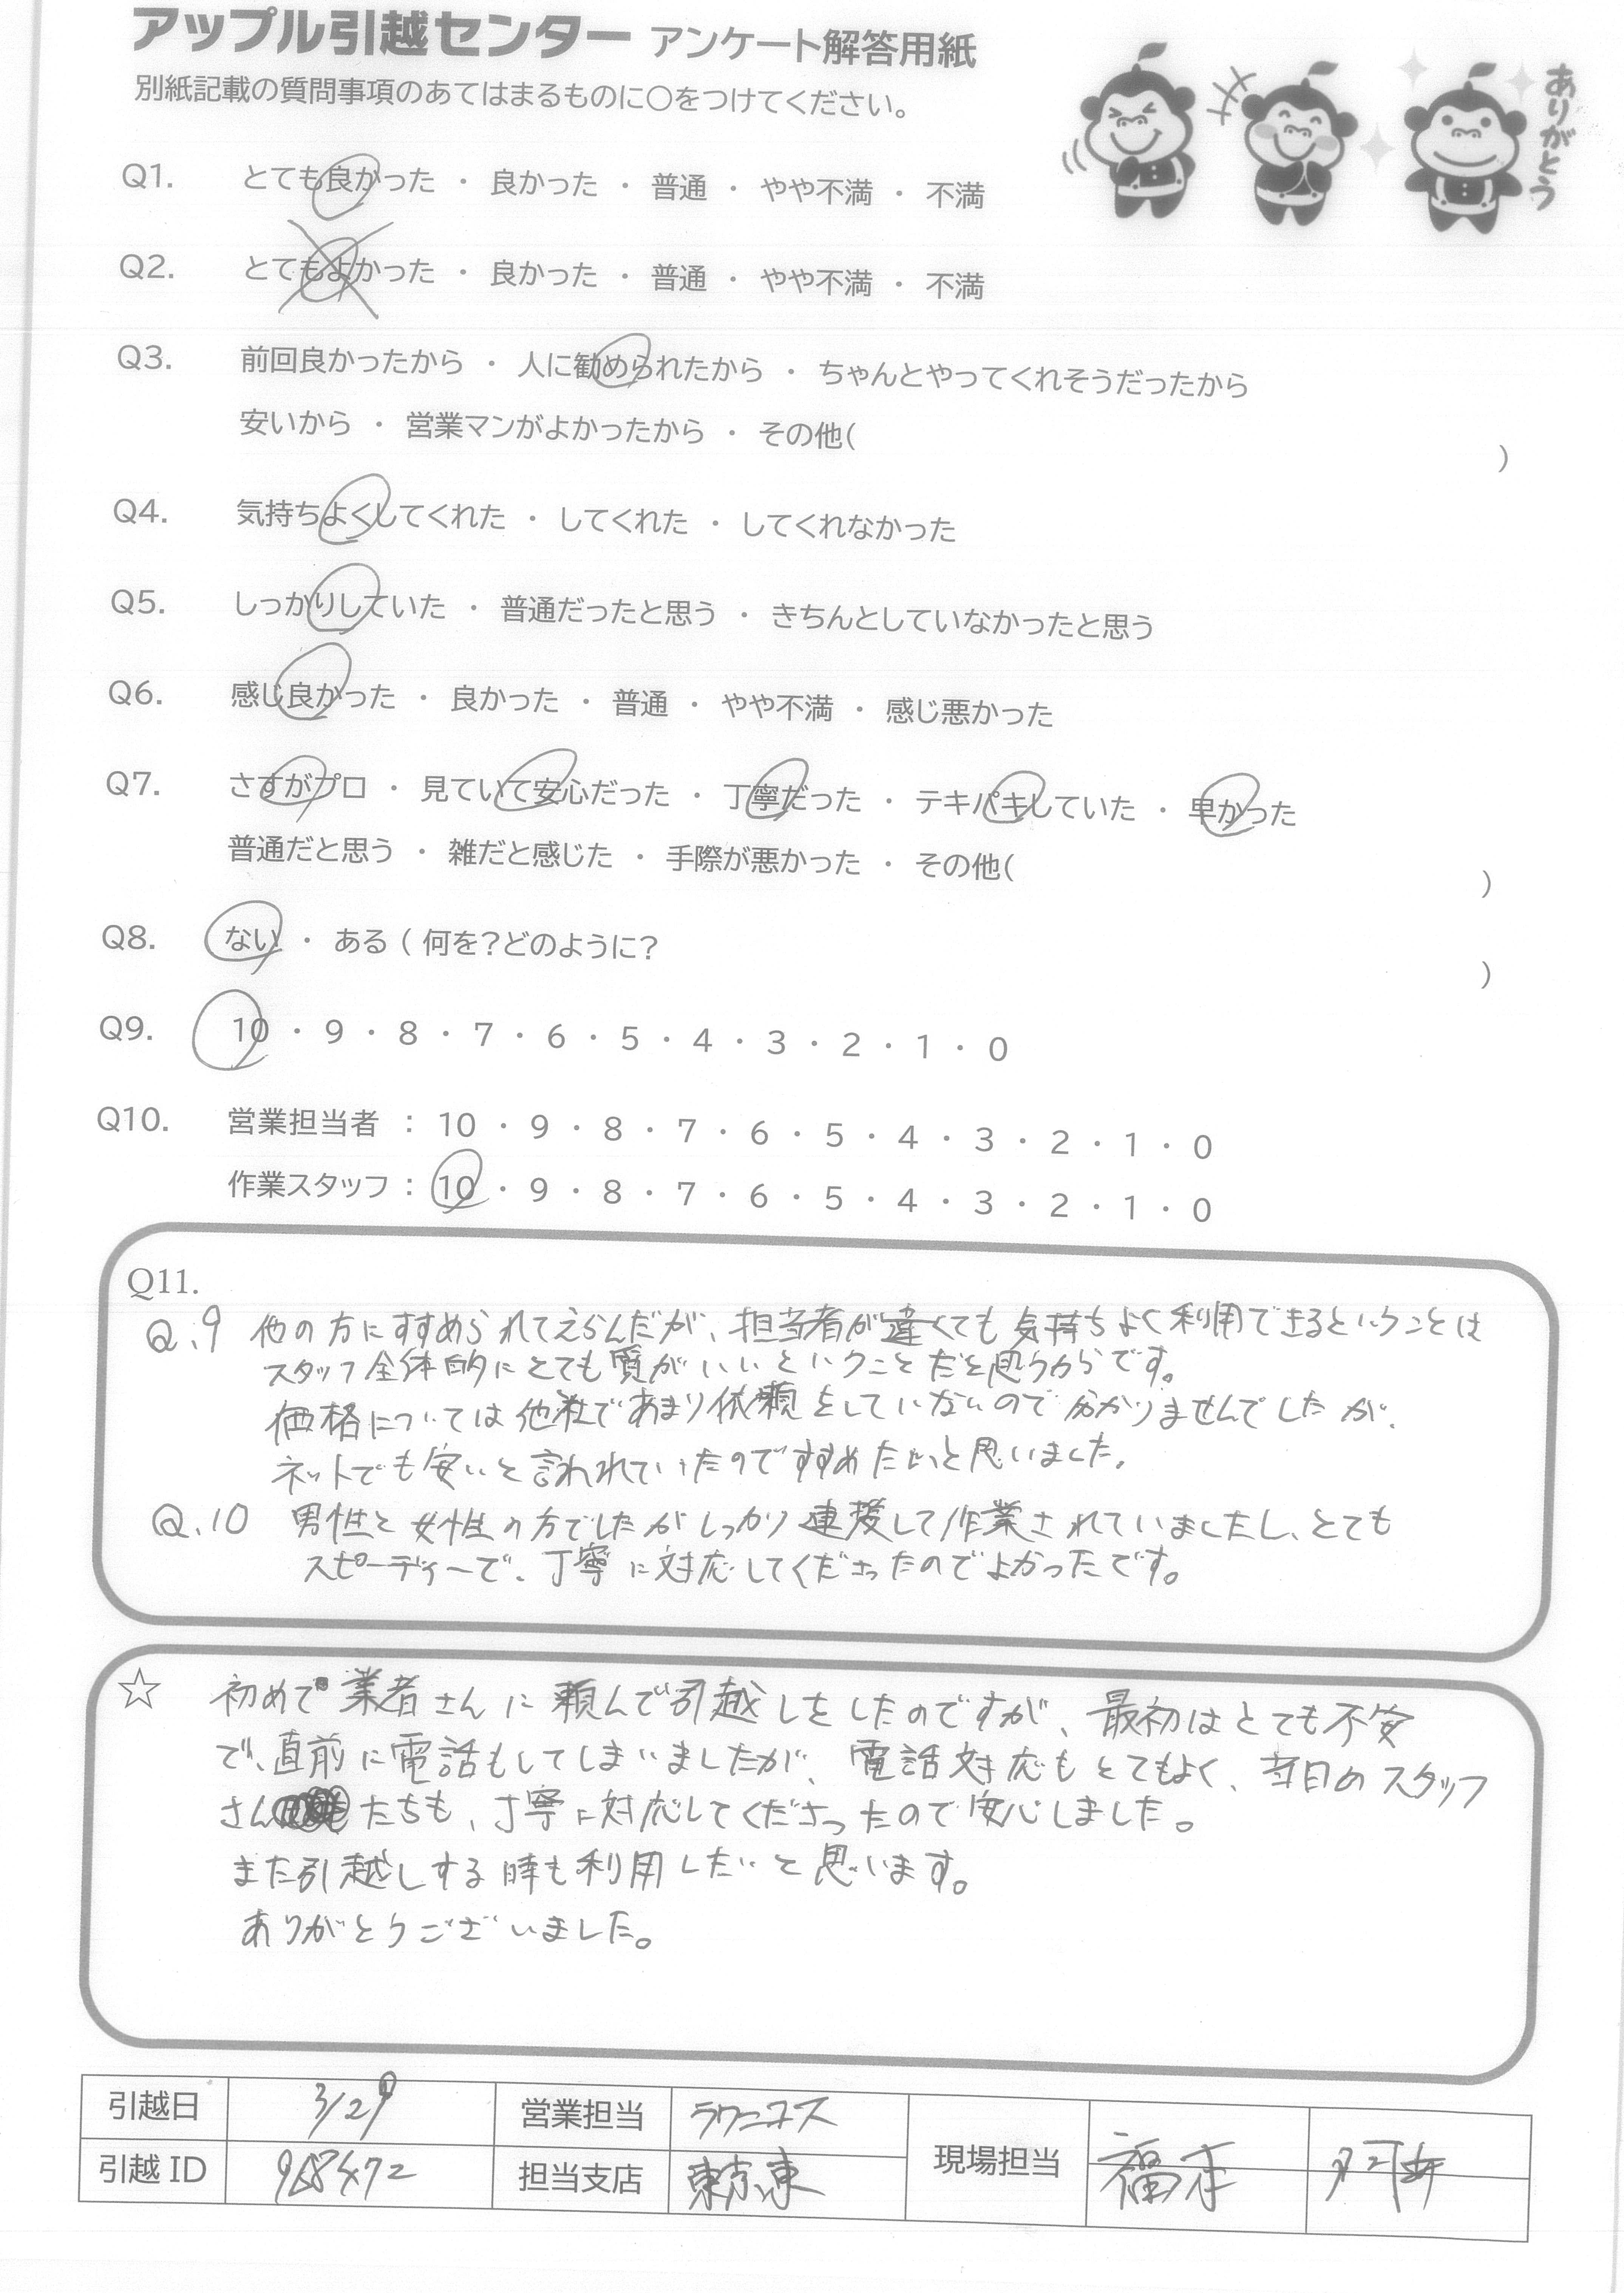 アップル引越センター アンケート解答用紙
別紙記載の質問事項のあてはまるものに○をつけてください。
ありがとう
Q1. とても良かった ・ 良かった ・ 普通 ・ やや不満 ・ 不満
Q2. とてもよかった ・ 良かった ・ 普通 ・ やや不満 ・ 不満
Q3. 前回良かったから ・ 人に勧められたから ・ ちゃんとやってくれそうだったから
安いから ・ 営業マンがよかったから ・ その他( )
Q4. 気持ちよくしてくれた ・ してくれた ・ してくれなかった
Q5. しっかりしていた ・ 普通だったと思う ・ きちんとしていなかったと思う
Q6. 感じ良かった ・ 良かった ・ 普通 ・ やや不満 ・ 感じ悪かった
Q7. さすがプロ ・ 見ていて安心だった ・ 丁寧だった ・ テキパキしていた ・ 早かった
普通だと思う ・ 雑だと感じた ・ 手際が悪かった ・ その他( )
Q8. ない ・ ある ( 何を?どのように? )
Q9. 10 ・ 9 ・ 8 ・ 7 ・ 6 ・ 5 ・ 4 ・ 3 ・ 2 ・ 1 ・ 0
Q10. 営業担当者 : 10 ・ 9 ・ 8 ・ 7 ・ 6 ・ 5 ・ 4 ・ 3 ・ 2 ・ 1 ・ 0
作業スタッフ : 10 ・ 9 ・ 8 ・ 7 ・ 6 ・ 5 ・ 4 ・ 3 ・ 2 ・ 1 ・ 0
Q11.
Q.9 他の方にすすめられてえらんだが、担当者が違くても気持ちよく利用できるということは
スタッフ全体的にとても質がいいということだと思うからです。
価格については他社であまり依頼をしていないので分かりませんでしたが、
ネットでも安いと言われていたのですすめたいと思いました。
Q.10 男性と女性の方でしたがしっかり連携して作業されていましたし、とても
スピーディーで、丁寧に対応してくださったのでよかったです。
☆ 初めて業者さんに頼んで引越しをしたのですが、最初はとても不安
で、直前に電話もしてしまいましたが、電話対応もとてもよく、当日のスタッフ
さんたちも、丁寧に対応してくださったので安心しました。
また引越しする時も利用したいと思います。
ありがとうございました。
引越日 3/29 営業担当 ラウニユス 現場担当 福本
引越ID 968472 担当支店 東京東